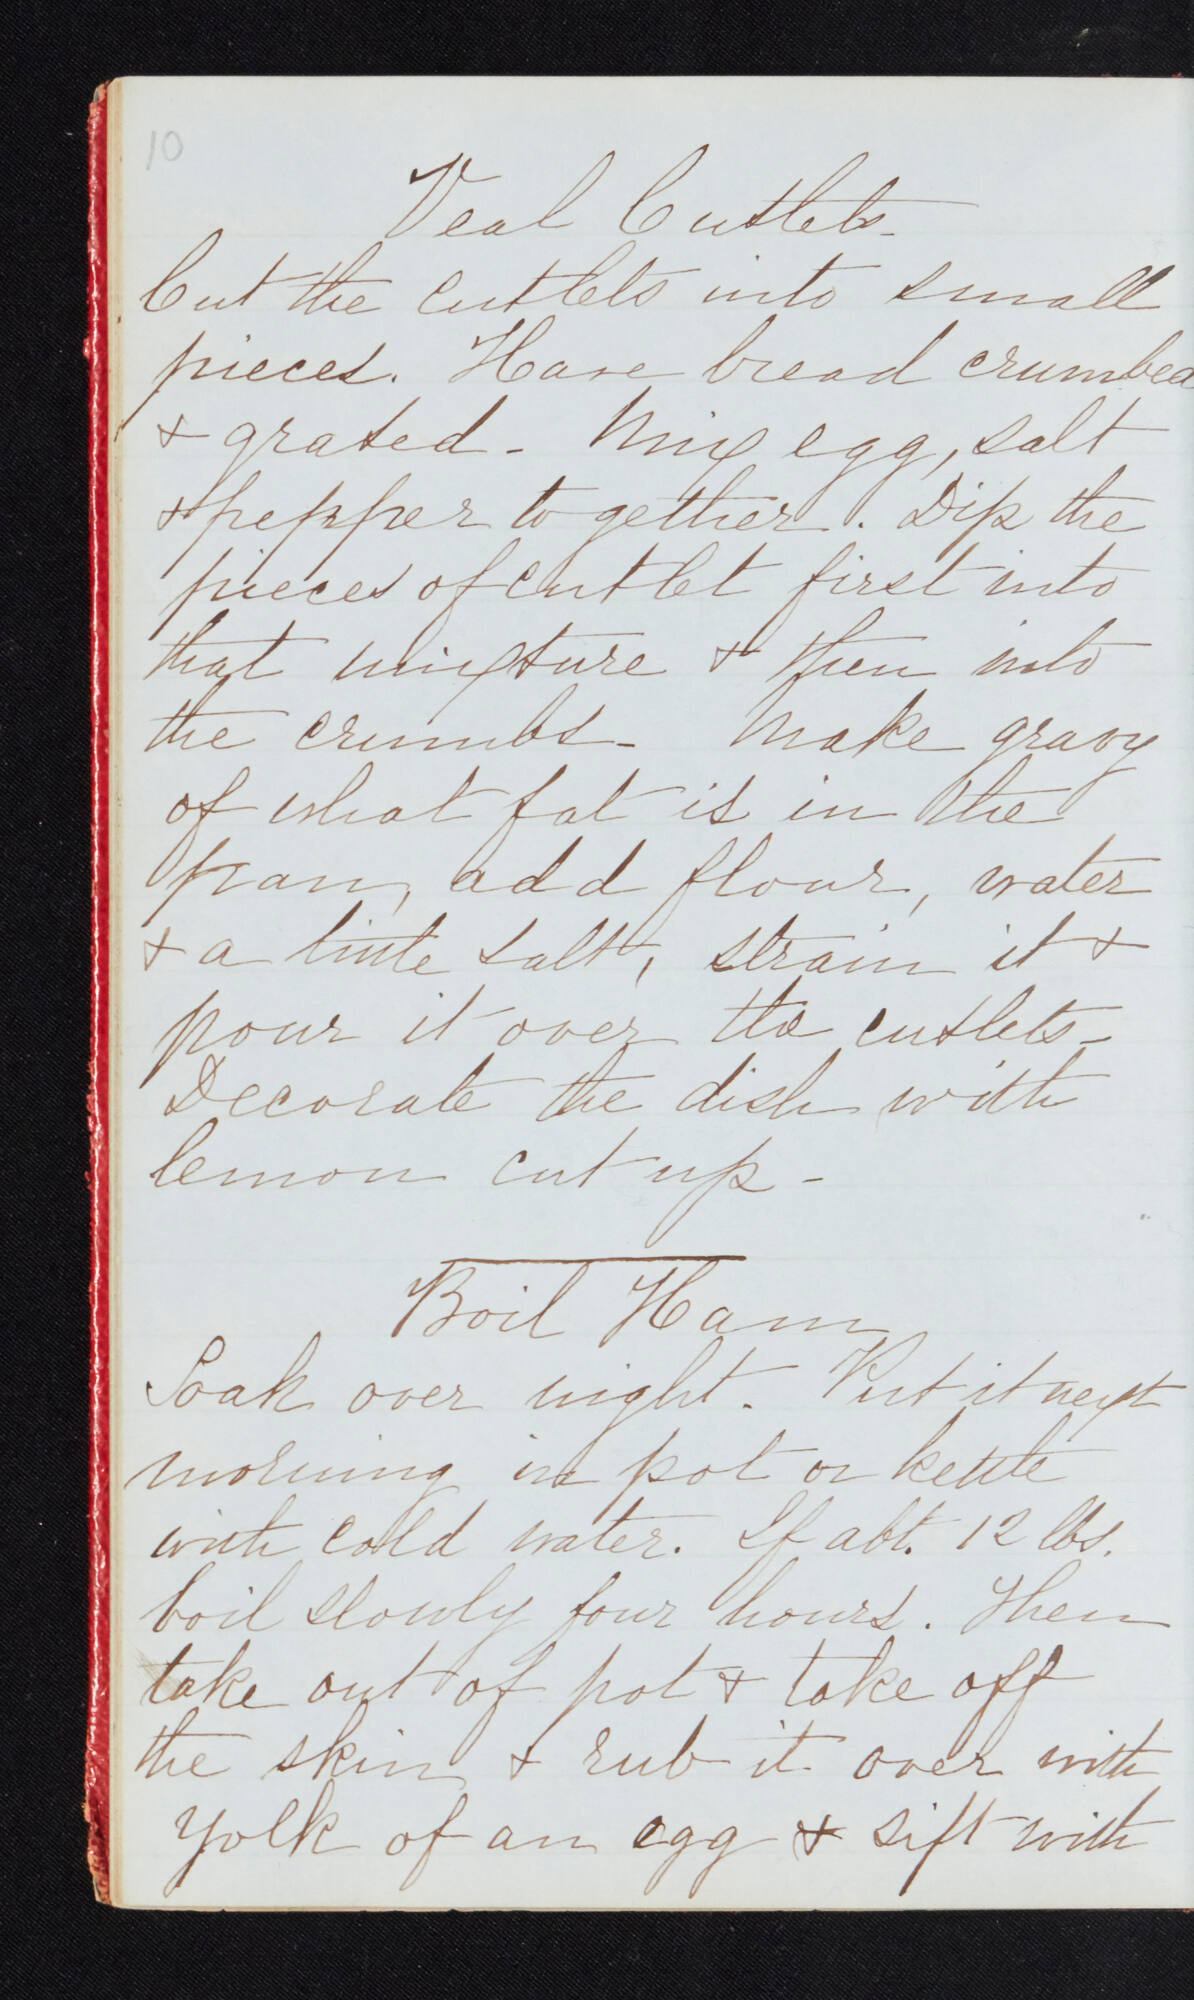 10
Veal Cutlets-
Cut the cutlets into small
pieces. Have bread crumbed
& grated - Mix egg, salt
& pepper together. Dip the
pieces of cutlet first into
that mixture & then into
the crumbs - Make gravy
of what fat is in the
pan, add flour, water
& a little salt, strain it &
pour it over the cutlets-
Decorate the dish with
lemon cut up -
Boil Ham
Soak over night. Put it next
morning in pot or kettle
with cold water. If abt. 12 lbs.
boil slowly four hours. Then
take out of pot & take off
the skin & rub it over with
yolk of an egg & sift with